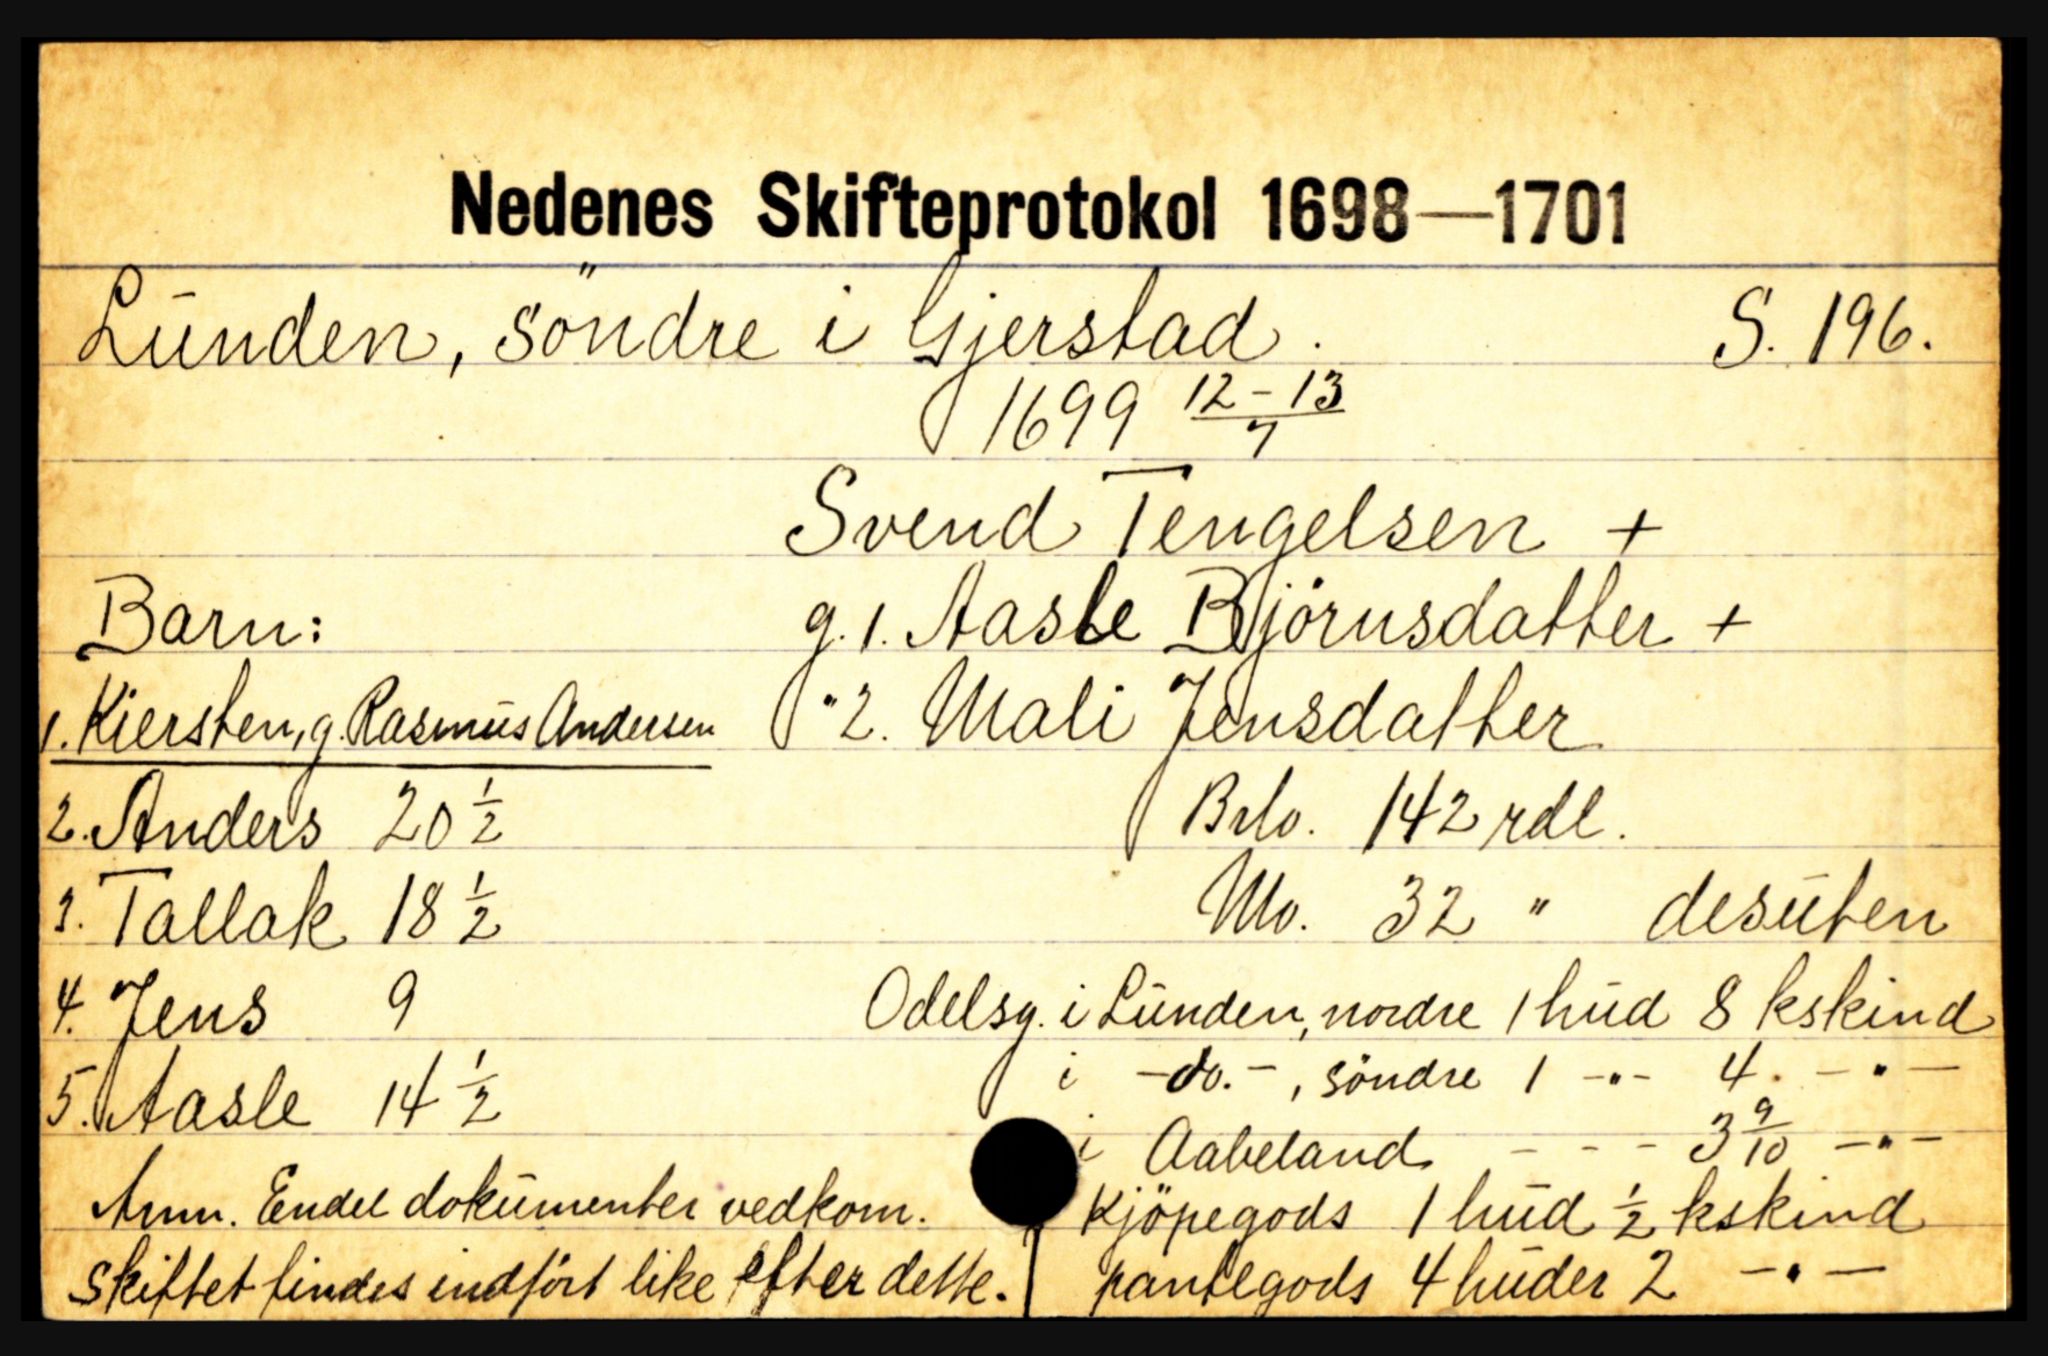 Nedenes Skifteprotokol 1698—1701
Lunden, söndre i Gjerstad. S. 196.
1699 12-13/7
Svend Tengelsen +
Barn: g. 1. Aasle Björnsdatter +
1. Kiersten, g. Rasmus Andersen " 2. Mali Jensdatter
2. Anders 20 1/2 Brlo. 142 rdl.
3. Tallak 18 1/2 Mo. 32 " desuten
4. Jens 9 Odelsg. i Lunden, nordre 1 hud 8 kskind
5. Aasle 14 1/2 i -do.-, söndre 1 -"- 4. -"-
i Aabeland - - - 3 9/10 -"-
Anm. Endel dokumenter vedkom. Kjöpegods 1 hud 1/2 kskind
Skiftet findes indfört like efter dette. pantegods 4 huder 2 -"-